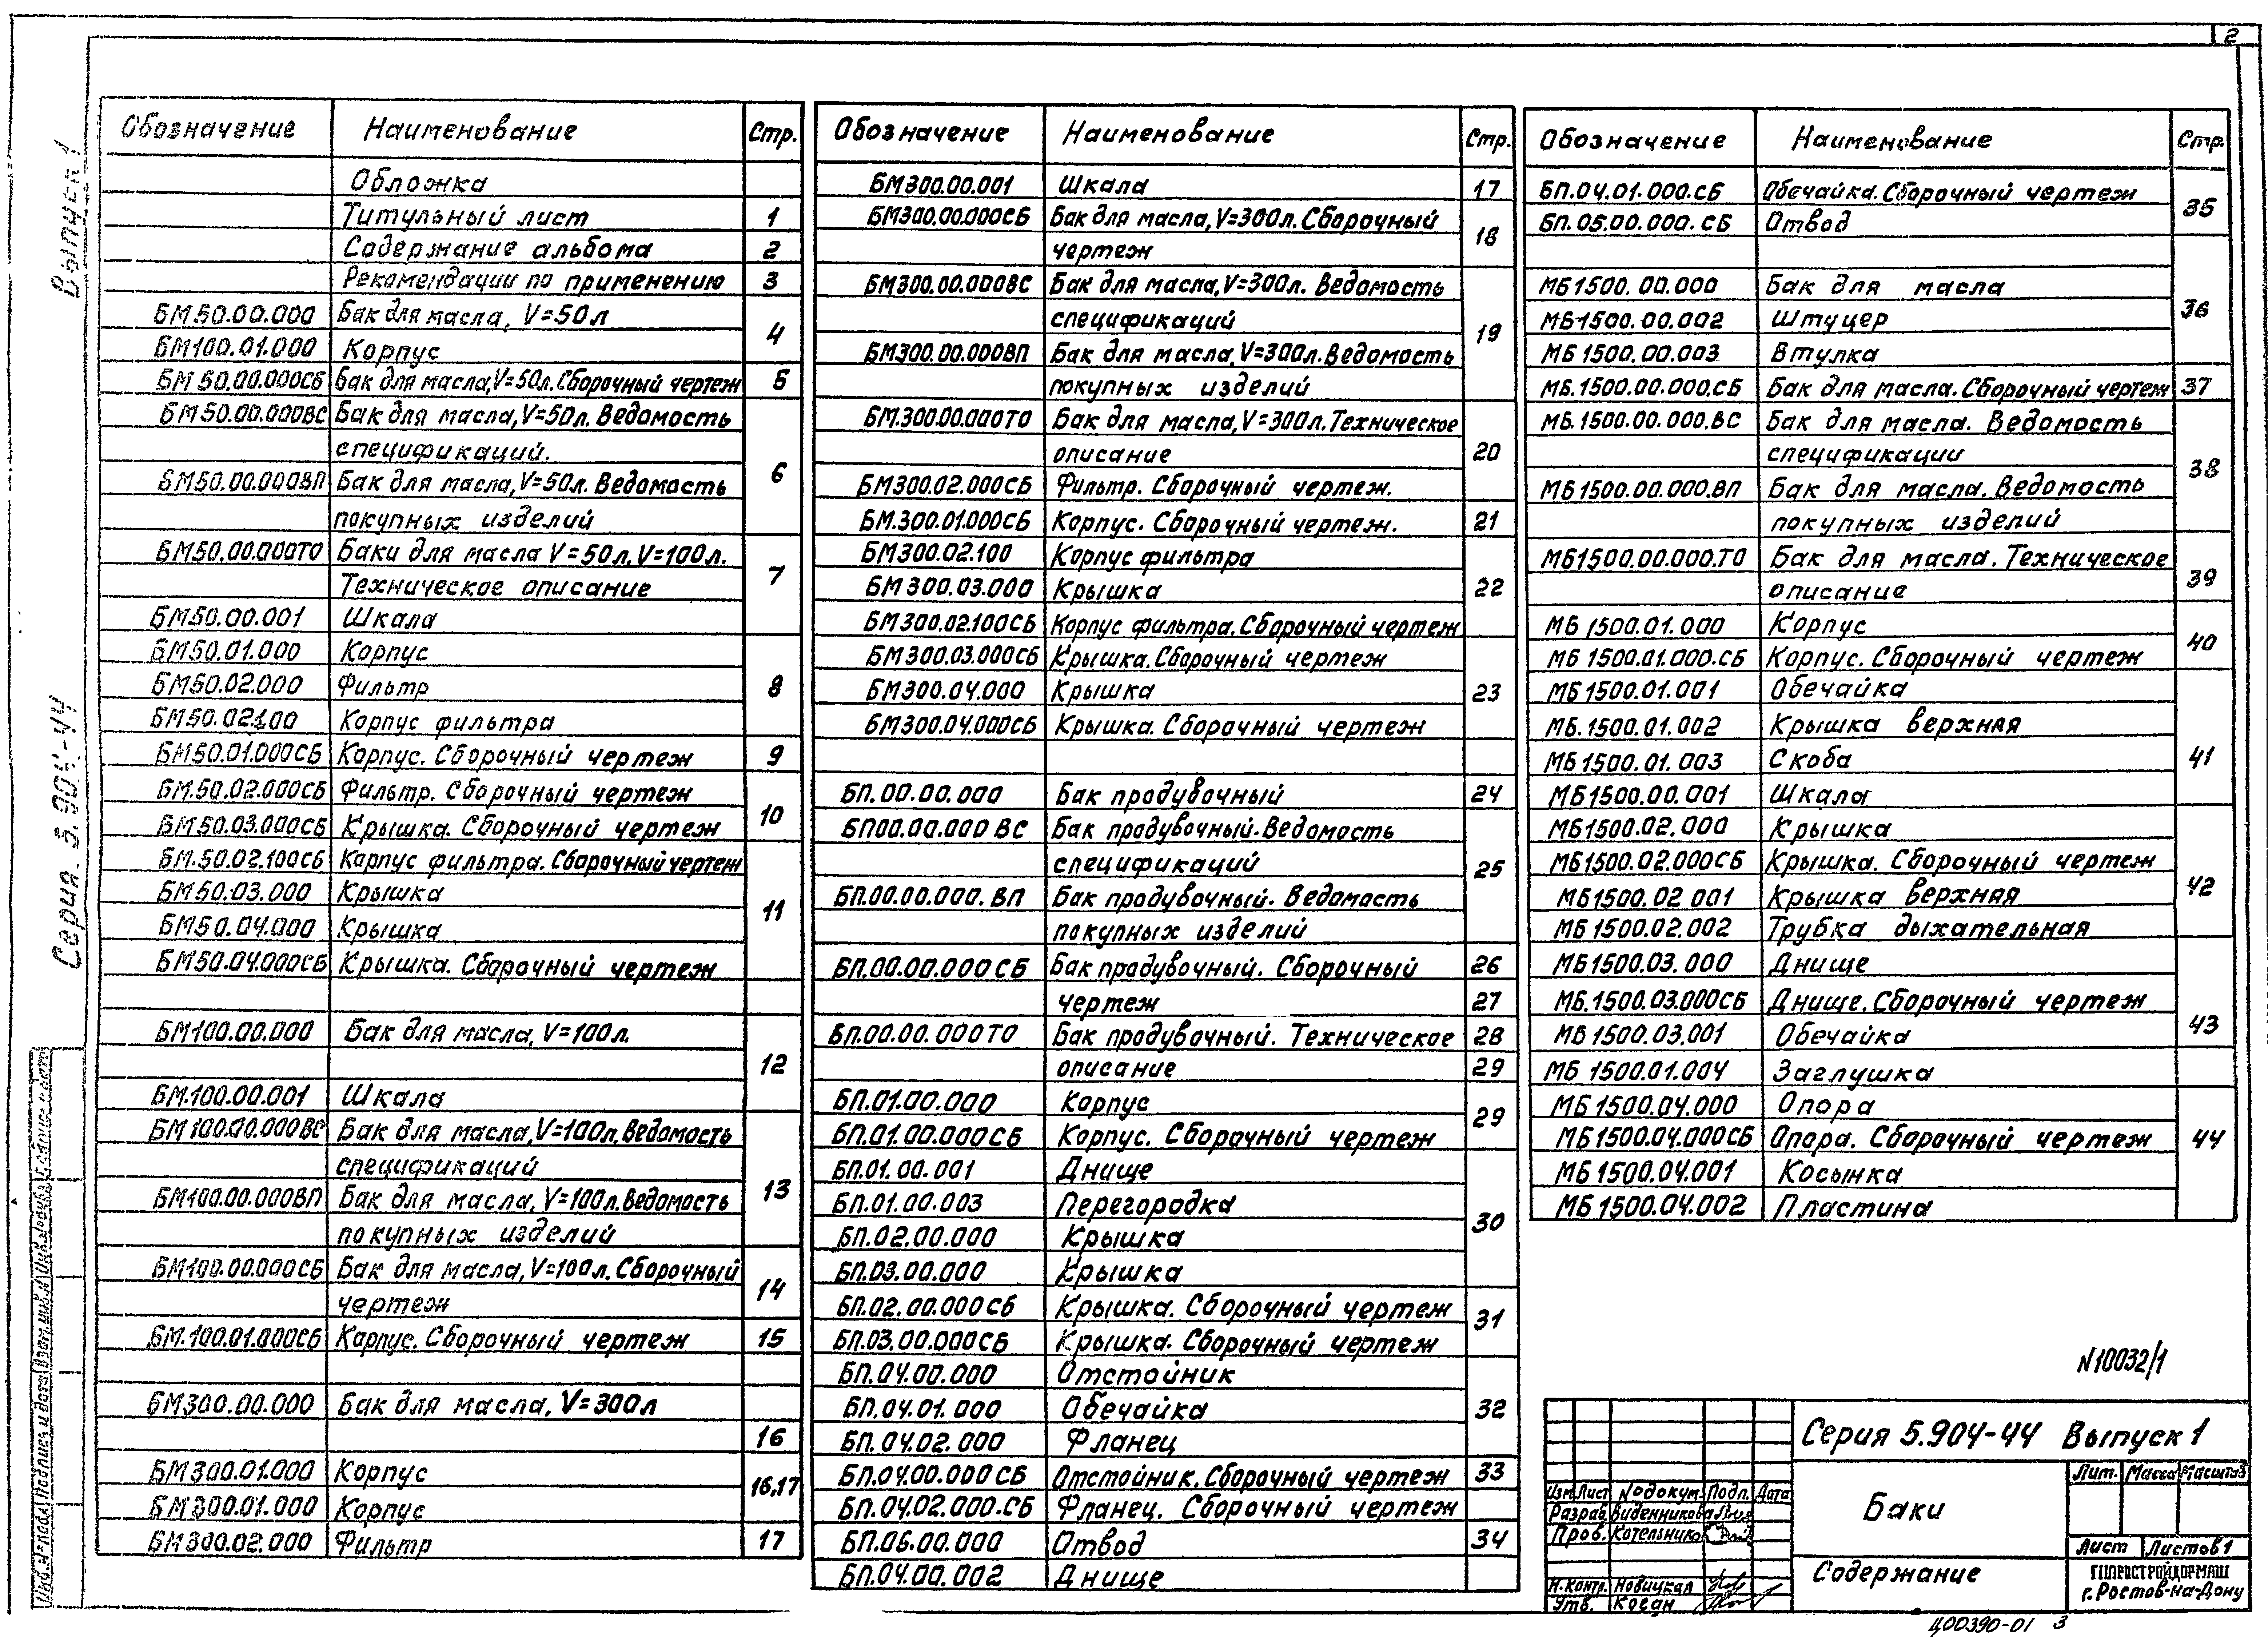 2
Выпуск 1
Серия. 5.904-44
Обозначение Наименование Стр.
Обложка
Титульный лист 1
Содержание альбома 2
Рекомендации по применению 3
БМ50.00.000 Бак для масла, V=50л
4
БМ100.01.000 Корпус
БМ 50.00.000СБ Бак для масла, V=50л. Сборочный чертеж 5
БМ50.00.000ВС Бак для масла, V=50л. Ведомость
спецификаций.
6
БМ50.00.000ВП Бак для масла, V=50л. Ведомость
покупных изделий
БМ50.00.000ТО Баки для масла V=50л, V=100л.
7
Техническое описание
БМ50.00.001 Шкала
БМ50.01.000 Корпус
БМ50.02.000 Фильтр 8
БМ50.02.100 Корпус фильтра
БМ50.01.000СБ Корпус. Сборочный чертеж 9
БМ.50.02.000СБ Фильтр. Сборочный чертеж
10
БМ50.03.000СБ Крышка. Сборочный чертеж
БМ.50.02.100СБ Корпус фильтра. Сборочный чертеж
БМ50.03.000 Крышка
11
БМ50.04.000 Крышка
БМ50.04.000СБ Крышка. Сборочный чертеж
БМ100.00.000 Бак для масла, V=100л.
12
БМ.100.00.001 Шкала
БМ100.00.000ВС Бак для масла, V=100л. Ведомость
спецификаций
13
БМ100.00.000ВП Бак для масла, V=100л. Ведомость
покупных изделий
БМ100.00.000СБ Бак для масла, V=100л. Сборочный
14
чертеж
БМ.100.01.000СБ Корпус. Сборочный чертеж 15
БМ300.00.000 Бак для масла, V=300л
16
БМ300.01.000 Корпус
16,17
БМ300.01.000 Корпус
БМ300.02.000 Фильтр 17
Обозначение Наименование Стр.
БМ300.00.001 Шкала 17
БМ300.00.000СБ Бак для масла, V=300л. Сборочный
18
чертеж
БМ300.00.000ВС Бак для масла, V=300л. Ведомость
спецификаций
19
БМ300.00.000ВП Бак для масла, V=300л. Ведомость
покупных изделий
БМ.300.00.000ТО Бак для масла, V=300л. Техническое
описание 20
БМ300.02.000СБ Фильтр. Сборочный чертеж.
БМ.300.01.000СБ Корпус. Сборочный чертеж. 21
БМ300.02.100 Корпус фильтра
БМ300.03.000 Крышка 22
БМ300.02.100СБ Корпус фильтра. Сборочный чертеж
БМ300.03.000СБ Крышка. Сборочный чертеж
БМ300.04.000 Крышка 23
БМ300.04.000СБ Крышка. Сборочный чертеж
БП.00.00.000 Бак продувочный 24
БП00.00.000 ВС Бак продувочный. Ведомость
спецификаций
25
БП.00.00.000. ВП Бак продувочный. Ведомость
покупных изделий
БП.00.00.000 СБ Бак продувочный. Сборочный 26
чертеж 27
БП.00.00.000ТО Бак продувочный. Техническое 28
описание 29
БП.01.00.000 Корпус
29
БП.01.00.000СБ Корпус. Сборочный чертеж
БП.01.00.001 Днище
БП.01.00.003 Перегородка
30
БП.02.00.000 Крышка
БП.03.00.000 Крышка
БП.02.00.000СБ Крышка. Сборочный чертеж
31
БП.03.00.000СБ Крышка. Сборочный чертеж
БП.04.00.000 Отстойник
БП.04.01.000 Обечайка 32
БП.04.02.000 Фланец
БП.04.00.000СБ Отстойник. Сборочный чертеж 33
БП.04.02.000.СБ Фланец. Сборочный чертеж
БП.06.00.000 Отвод 34
БП.04.00.002 Днище
Обозначение Наименование Стр.
БП.04.01.000.СБ Обечайка. Сборочный чертеж
35
БП.05.00.000.СБ Отвод
МБ1500.00.000 Бак для масла
МБ1500.00.002 Штуцер 36
МБ1500.00.003 Втулка
МБ.1500.00.000.СБ Бак для масла. Сборочный чертеж 37
МБ.1500.00.000.ВС Бак для масла. Ведомость
спецификации
38
МБ1500.00.000.ВП Бак для масла. Ведомость
покупных изделий
МБ1500.00.000.ТО Бак для масла. Техническое
39
описание
МБ 1500.01.000 Корпус
40
МБ 1500.01.000.СБ Корпус. Сборочный чертеж
МБ1500.01.001 Обечайка
МБ.1500.01.002 Крышка верхняя
МБ1500.01.003 Скоба 41
МБ1500.00.001 Шкала
МБ1500.02.000 Крышка
МБ1500.02.000СБ Крышка. Сборочный чертеж
42
МБ1500.02 001 Крышка верхняя
МБ1500.02.002 Трубка дыхательная
МБ1500.03.000 Днище
МБ.1500.03.000СБ Днище. Сборочный чертеж
МБ1500.03.001 Обечайка 43
МБ 1500.01.004 Заглушка
МБ1500.04.000 Опора
МБ1500.04.000СБ Опора. Сборочный чертеж 44
МБ1500.04.001 Косынка
МБ1500.04.002 Пластина
N10032/1
Серия 5.904-44 Выпуск 1
Лит. Масса Масштаб
Баки
Изм. Лист № докум. Подп. Дата
Разраб. Виденникова
Пров. Котельнико
Лист Листов 1
Н.контр. Новицкая
Утв. Косан
Содержание
ГИПРОСТРОЙДОРМАШ
г. Ростов-на-Дону
Инв.№ подл. Подпись и дата Взам.инв.№ Инв.№ дубл. Подпись и дата
Ц00390-01 3